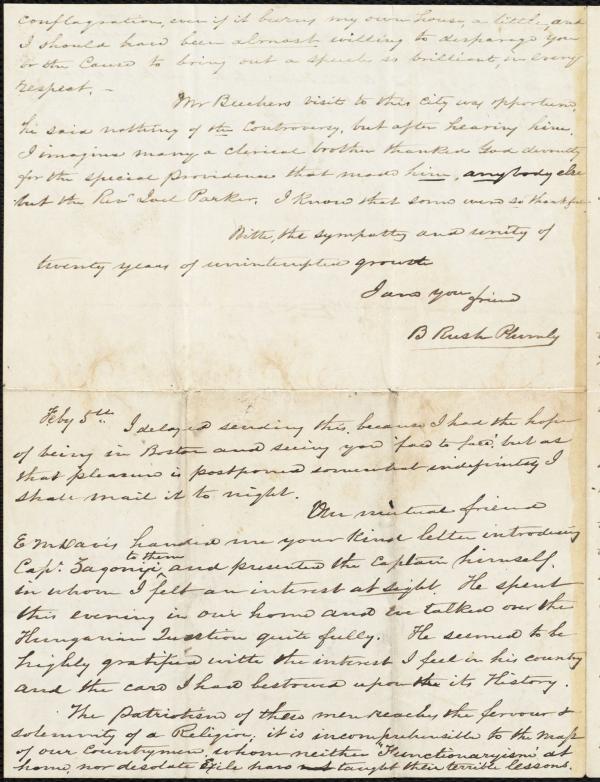 conflagration, even if it burns my own house, a little, and
I should have been almost willing to disparage you
or the Cause to bring out a speech so brilliant, in every
respect. —
Mr Beechers visit to this city was opportune,
he said nothing of the Controversy, but after hearing him,
I imagine many a clerical brother thanked God devoutly
for the special Providence that made him, anybody else
but the Revd Joel Parker. I know that some were so thankful
With, the sympathy and unity of
twenty years of uninterrupted growth
I am your friend
B Rush Plumly
Feby 5th. I delayed sending this, because I had the hope
of being in Boston and seeing you 'face to face', but as
that pleasure is postponed somewhat indefinitely I
shall mail it to night.
Our mutual friend
E M Davis handed me your kind letter introducing
to them
Capt. Zagonyi, and presented the Captain himself.
in whom I felt an interest at sight. He spent
this evening in our home and we talked over the
Hungarian Question quite fully. He seemed to be
highly gratified with the interest I feel in his country
and the care I had bestowed upon the its History.
The Patriotism of these men reaches the fervour &
solemnity of a Religion; it is incomprehensible to the mass
of our Countrymen, whom neither "Functionaryism" at
home, nor desolate Exile have not taught their terrible lessons.